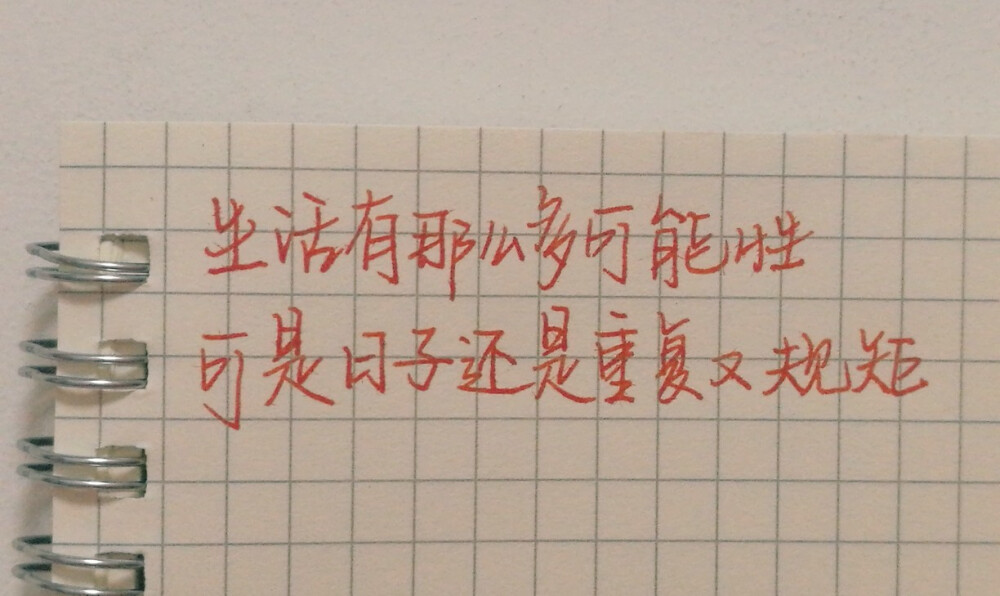 生活有那么多可能性
可是日子还是重复又规矩